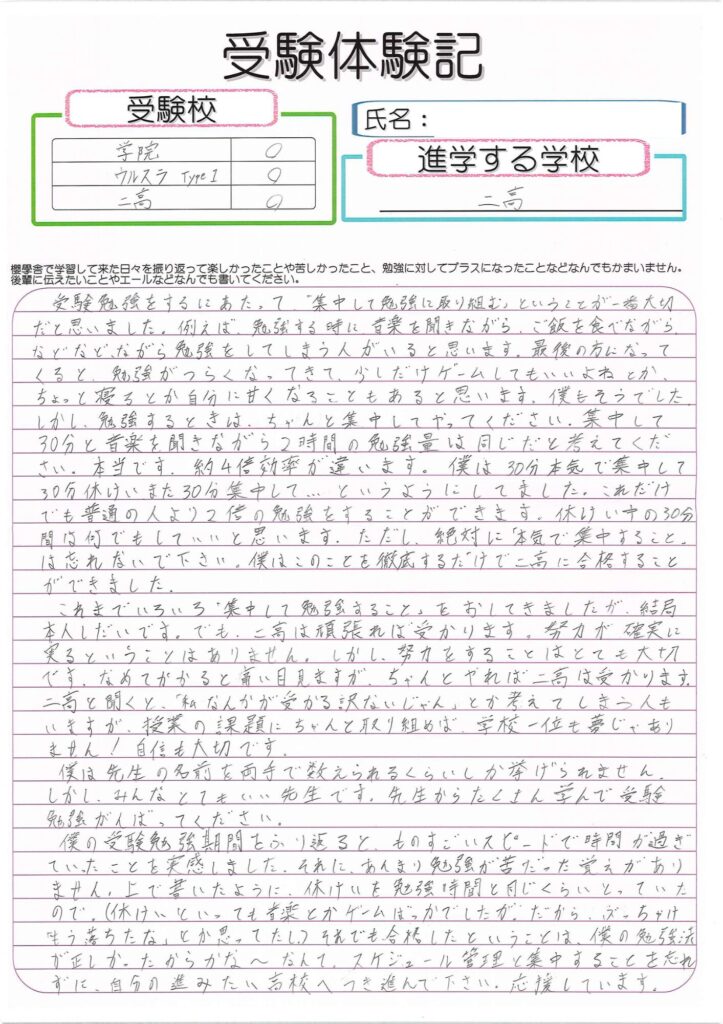 受験体験記
受験校
学院 ○
ウルスラ Type1 ○
二高 ○
氏名：
進学する学校
二高
櫻學舎で学習して来た日々を振り返って楽しかったことや苦しかったこと、勉強に対してプラスになったことなどなんでもかまいません。
後輩に伝えたいことやエールなどなんでも書いてください。
受験勉強をするにあたって「集中して勉強に取り組む」ということが一番大切
だと思いました。例えば、勉強する時に音楽を聞きながら、ご飯を食べながら、
などなど、ながら勉強をしてしまう人がいると思います。最後の方になって
くると、勉強がつらくなってきて、少しだけゲームしてもいいよねとか、
ちょっと寝るとか自分に甘くなることもあると思います。僕もそうでした。
しかし、勉強するときは、ちゃんと集中してやってください。集中して
30分と音楽を聞きながら2時間の勉強量は同じだと考えてくだ
さい。本当です。約4倍効率が違います。僕は30分本気で集中して
30分休けいまた30分集中して…というようにしてました。これだけ
でも普通の人より2倍の勉強をすることができます。休けい中の30分
間は何でもしていいと思います。ただし、絶対に「本気で集中すること」
は忘れないで下さい。僕はこのことを徹底するだけで二高に合格すること
ができました。
これまでいろいろ「集中して勉強すること」をおしてきましたが、結局
本人しだいです。でも、二高は頑張れば受かります。努力が確実に
実るということはありません。しかし、努力をすることはとても大切
です。なめてかかると痛い目見ますが、ちゃんとやれば二高は受かります。
二高と聞くと、「私なんかが受かる訳ないじゃん」とか考えてしまう人も
いますが、授業の課題にちゃんと取り組めば、学校一位も夢じゃあり
ません！自信も大切です。
僕は先生の名前を両手で数えられるくらいしか挙げられません。
しかし、みんなとてもいい先生です。先生からたくさん学んで受験
勉強がんばってください。
僕の受験勉強期間をふり返ると、ものすごいスピードで時間が過ぎ
ていったことを実感しました。それに、あんまり勉強が苦だった覚えがあり
ません。上で書いたように、休けいを勉強時間と同じくらいとっていた
ので。(休けいといっても音楽とかゲームばっかでしたが。だから、ぶっちゃけ
「もう落ちたな」とか思ってたし。)それでも合格したということは、僕の勉強法
が正しかったからかな〜なんて。スケジュール管理と集中することを忘れ
ずに、自分の進みたい高校へつき進んで下さい。応援しています。